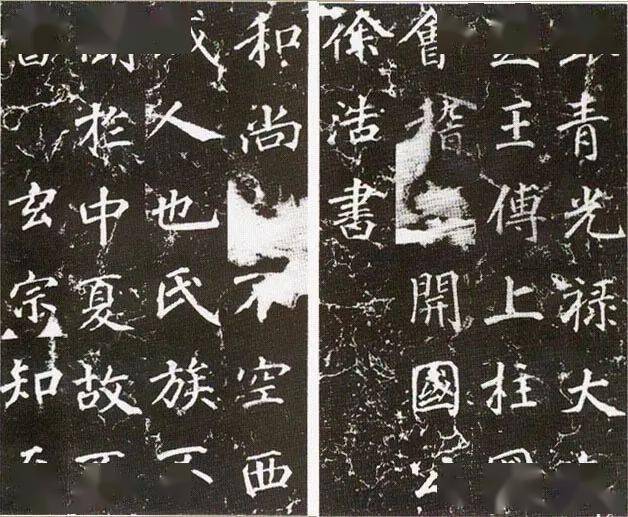 青光禄大
王傅上柱
會稽開國公
徐浩書
和尚不空西
人也氏族不
於中夏故
玄宗知